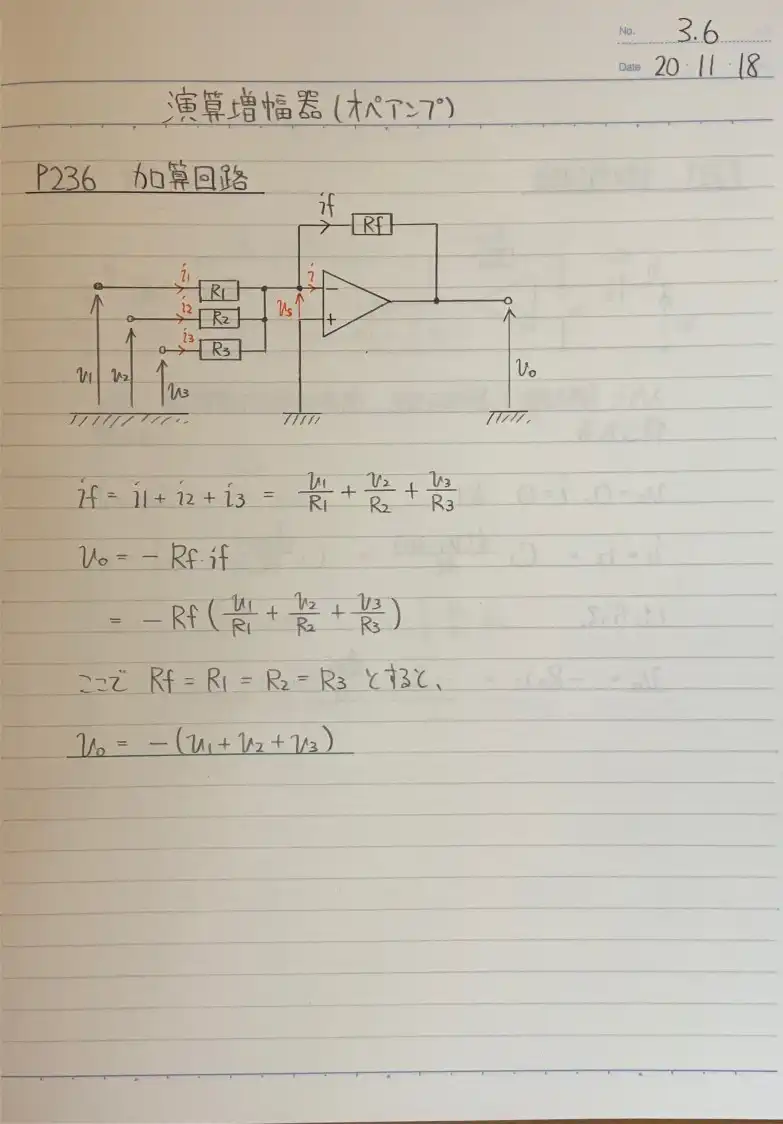 No. 3.6
Date 20・11・18
演算増幅器(オペアンプ)
P236 加算回路
if
Rf
i1 R1 i −
i2 R2 vs +
i3 R3
v1 v2 v3 vo
if = i1 + i2 + i3 = v1/R1 + v2/R2 + v3/R3
vo = − Rf・if
= − Rf ( v1/R1 + v2/R2 + v3/R3 )
ここで Rf = R1 = R2 = R3 とすると、
vo = − (v1 + v2 + v3)